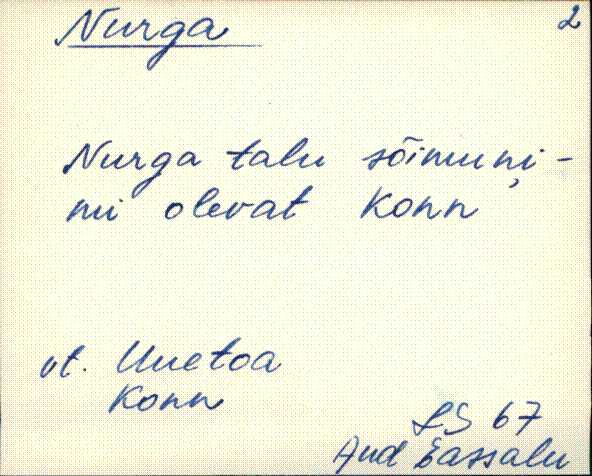 Nurga
2
Nurga talu sõimuņi-
mi olevat Konn
vt. Uuetoa
Konn
LS 67
And Eassalu